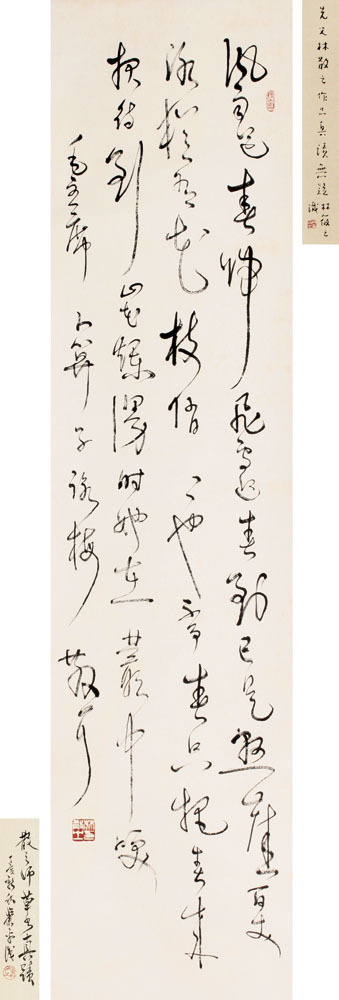 先父林散之作品真蹟無疑林筱之
識
風雨送春歸飛雪迎春到已是懸崖百丈
冰猶有花枝俏〻也不爭春只把春來
報待到山花爛漫時她在叢中笑
毛主席 卜算子詠梅 散耳
散之師草書真蹟